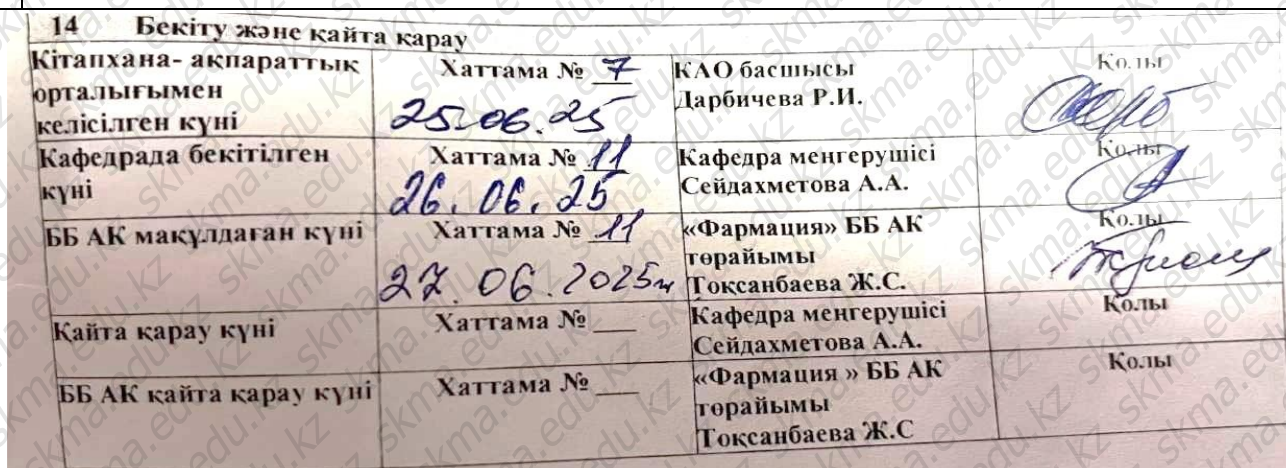 14 Бекіту және қайта қарау
Кітапхана- ақпараттық орталығымен келісілген күні
Хаттама № 7
25.06.25
КАО басшысы
Дарбичева Р.И.
Қолы
Кафедрада бекітілген күні
Хаттама № 11
26.06.25
Кафедра меңгерушісі
Сейдахметова А.А.
Қолы
ББ АК мақұлдаған күні
Хаттама № 11
27.06.2025
«Фармация» ББ АК
төрайымы
Тоқсанбаева Ж.С.
Қолы
Қайта қарау күні
Хаттама № ___
Кафедра меңгерушісі
Сейдахметова А.А.
Қолы
ББ АК қайта қарау күні
Хаттама № ___
«Фармация » ББ АК
төрайымы
Тоқсанбаева Ж.С
Қолы
skma.edu.kz